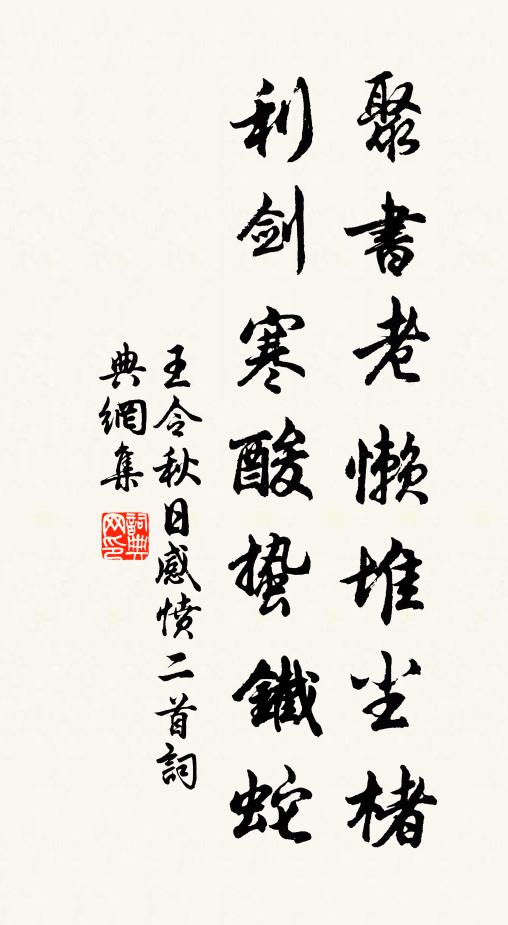 聚書老懶堆尘楮
利劍寒酸蟄鐵蛇
王令秋日感憤二首詞
典網集
詞典网印